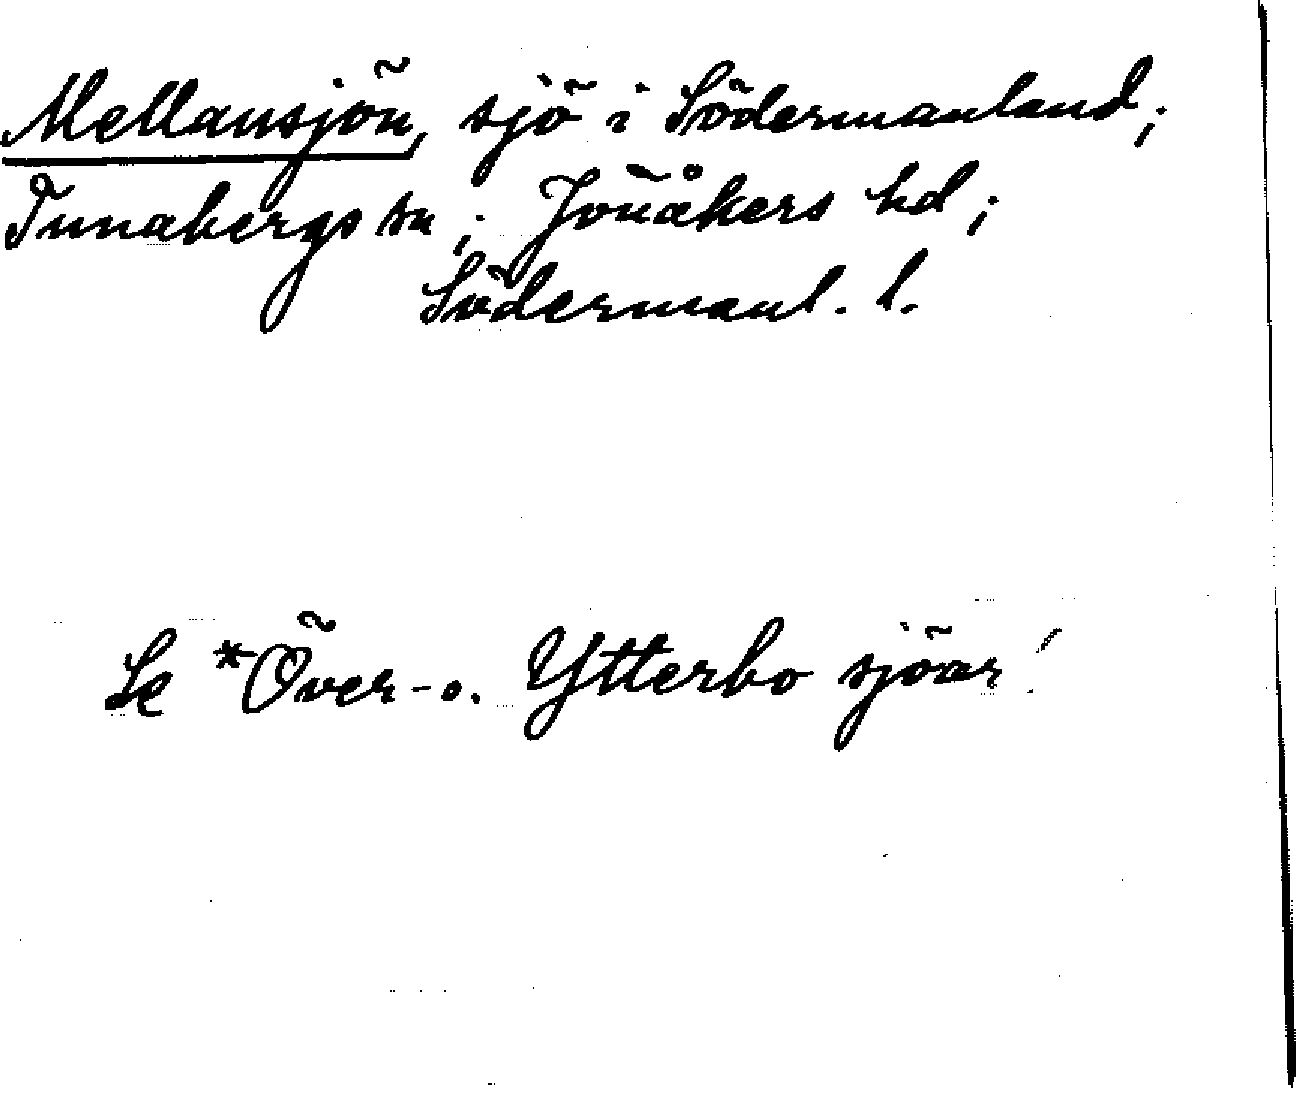 Mellansjön, sjö i Södermanland;
Tunabergs sn; Jönåkers hd;
Södermanl. l.
Se *Över- o. Ytterbo sjöar!